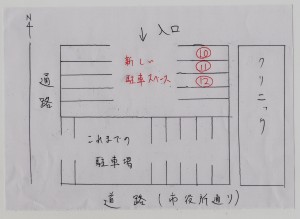 N
入口
新しい
駐車スペース
⑩
⑪
⑫
道路
クリニック
これまでの
駐車場
道路(市役所通り)